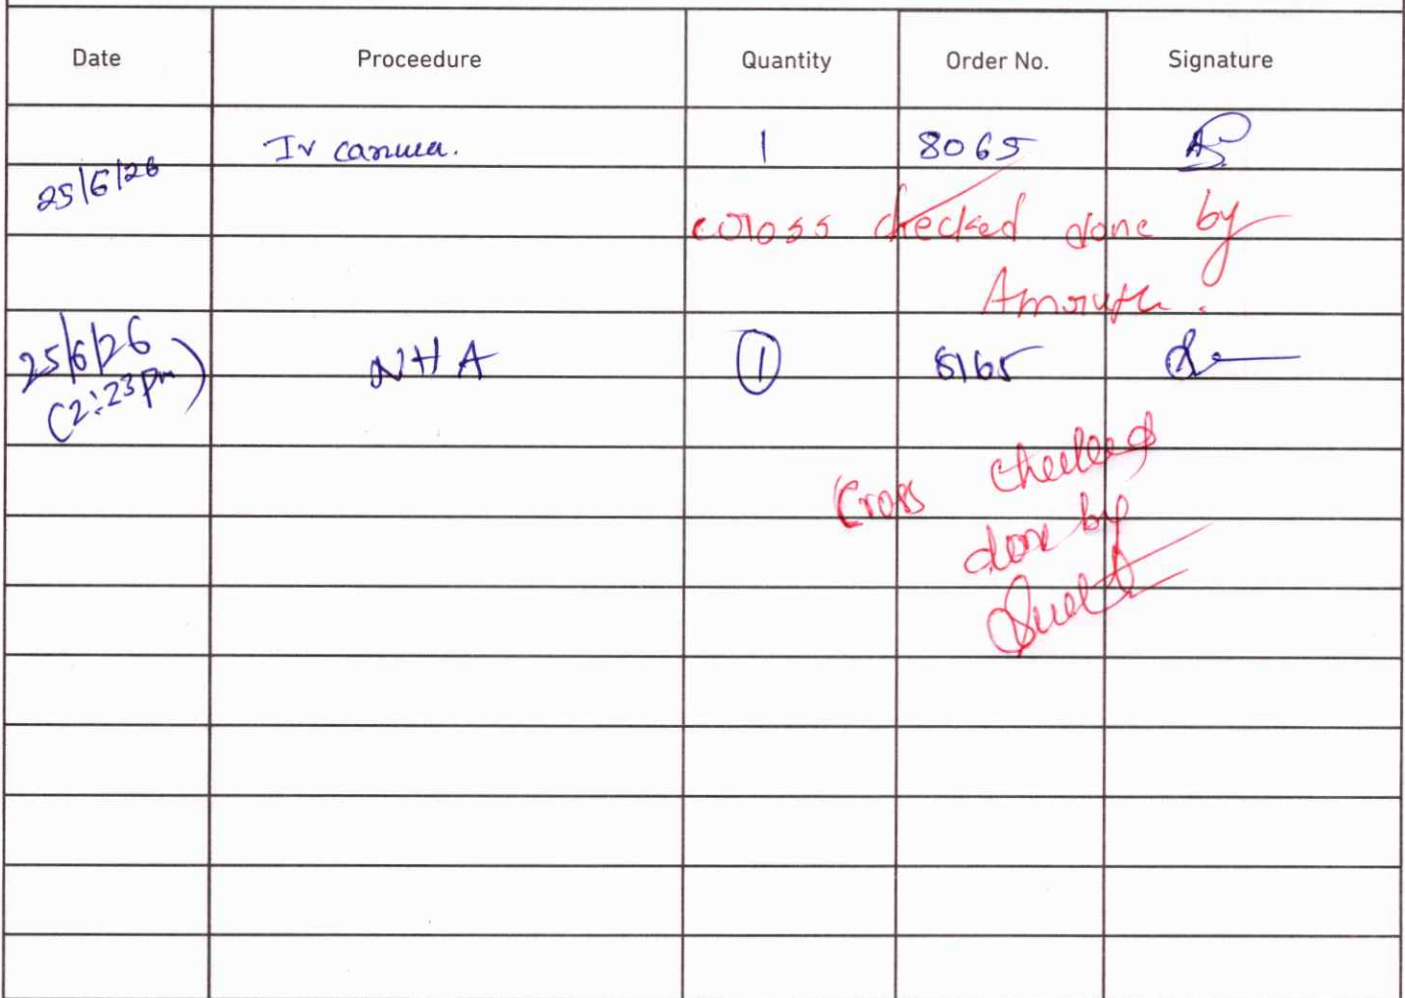 Date Proceedure Quantity Order No. Signature
Iv canula. 1 8065
25/6/26
cross checked done by
Amruth.
25/6/26 NHA 1 8165
(2:23pm)
Cross checked
done by